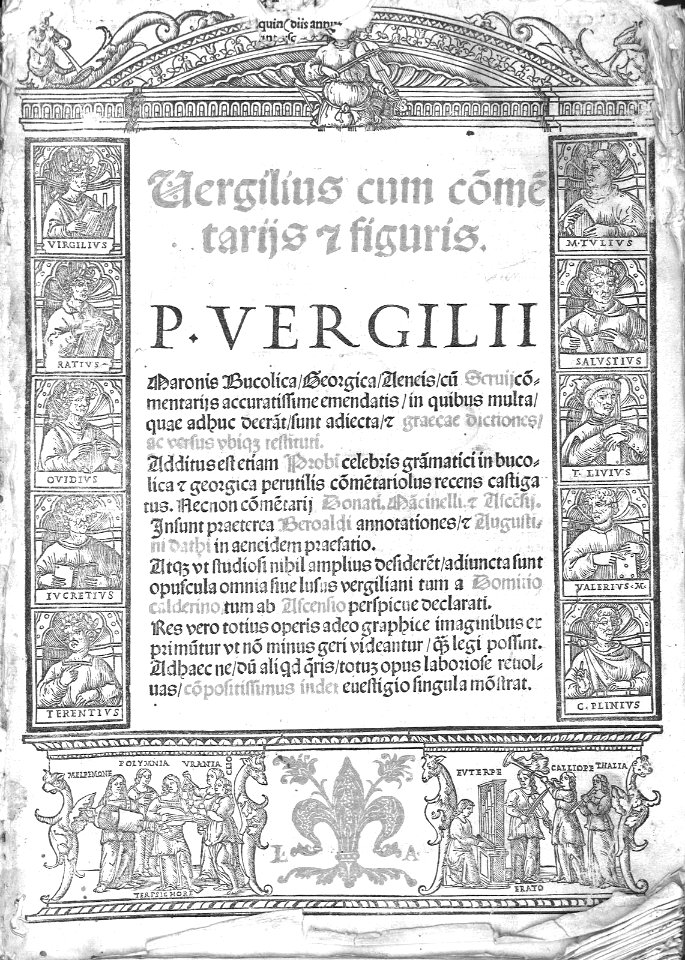 quin diis
Uergilius cum cōmē
tarijs ⁊ figuris.
P. VERGILII
Maronis Bucolica/Georgica/Aeneis/cū Seruij cō-
mentarijs accuratissime emendatis/in quibus multa/
quae adhuc deerāt/sunt adiecta/⁊ graecae dictiones/
ac versus vbiqꝫ restituti.
Additus est etiam Probi celebris grāmatici in buco-
lica ⁊ georgica perutilis cōmētariolus recens castiga
tus. Necnon cōmētarij Donati. Mācinelli. ⁊ Ascēsij.
Insunt praeterea Beroaldi annotationes/⁊ Augusti-
ni dathi in aeneidem praefatio.
Atqꝫ vt studiosi nihil amplius desiderēt/adiuncta sunt
opuscula omnia siue lusus vergiliani tum a Domitio
calderino, tum ab Ascensio perspicue declarati.
Res vero totius operis adeo graphice imaginibus ex
primūtur vt nō minus geri videantur/q̄ꝫ legi possint.
Adhaec ne/dū ali qd q̄ris/totuꝫ opus laboriose reuol-
uas/cōpositissimus index euestigio singula mōstrat.
VIRGILIVS
RATIVS
OVIDIVS
LVCRETIVS
TERENTIVS
M. TVLIVS
SALVSTIVS
T. LIVIVS
VALERIVS. M.
C. PLINIVS
MELPEMONE
POLYMNIA
VRANIA
CLIO
TERPSICHORE
L A
EVTERPE
CALLIOPE
THALIA
ERATO